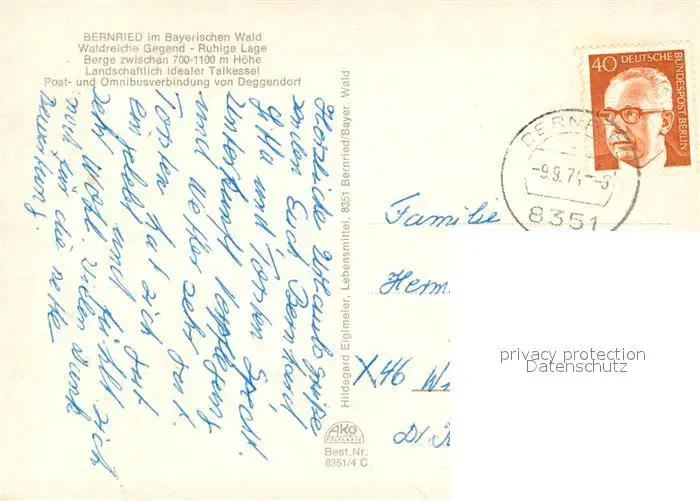 BERNRIED im Bayerischen Wald
Waldreiche Gegend - Ruhige Lage
Berge zwischen 700-1100 m Höhe
Landschaftlich idealer Talkessel
Post- und Omnibusverbindung von Deggendorf
Herzliche Urlaubsgrüße
Euch Bernhard
Gitta und Torsten
Unterkunft Verpflegung
und Wetter sehr gut.
Torsten hat sich gut
eingelebt und fühlt sich
sehr wohl. Vielen Dank
und für die nette
Hildegard Eiglmeier, Lebensmittel, 8351 Bernried/Bayer. Wald
AKO
Best.Nr.
8351/4 C.
40 DEUTSCHE BUNDESPOST BERLIN
BERNRIED
-9.9.74-
8351
Familie
Herm
X 46
privacy protection
Datenschutz